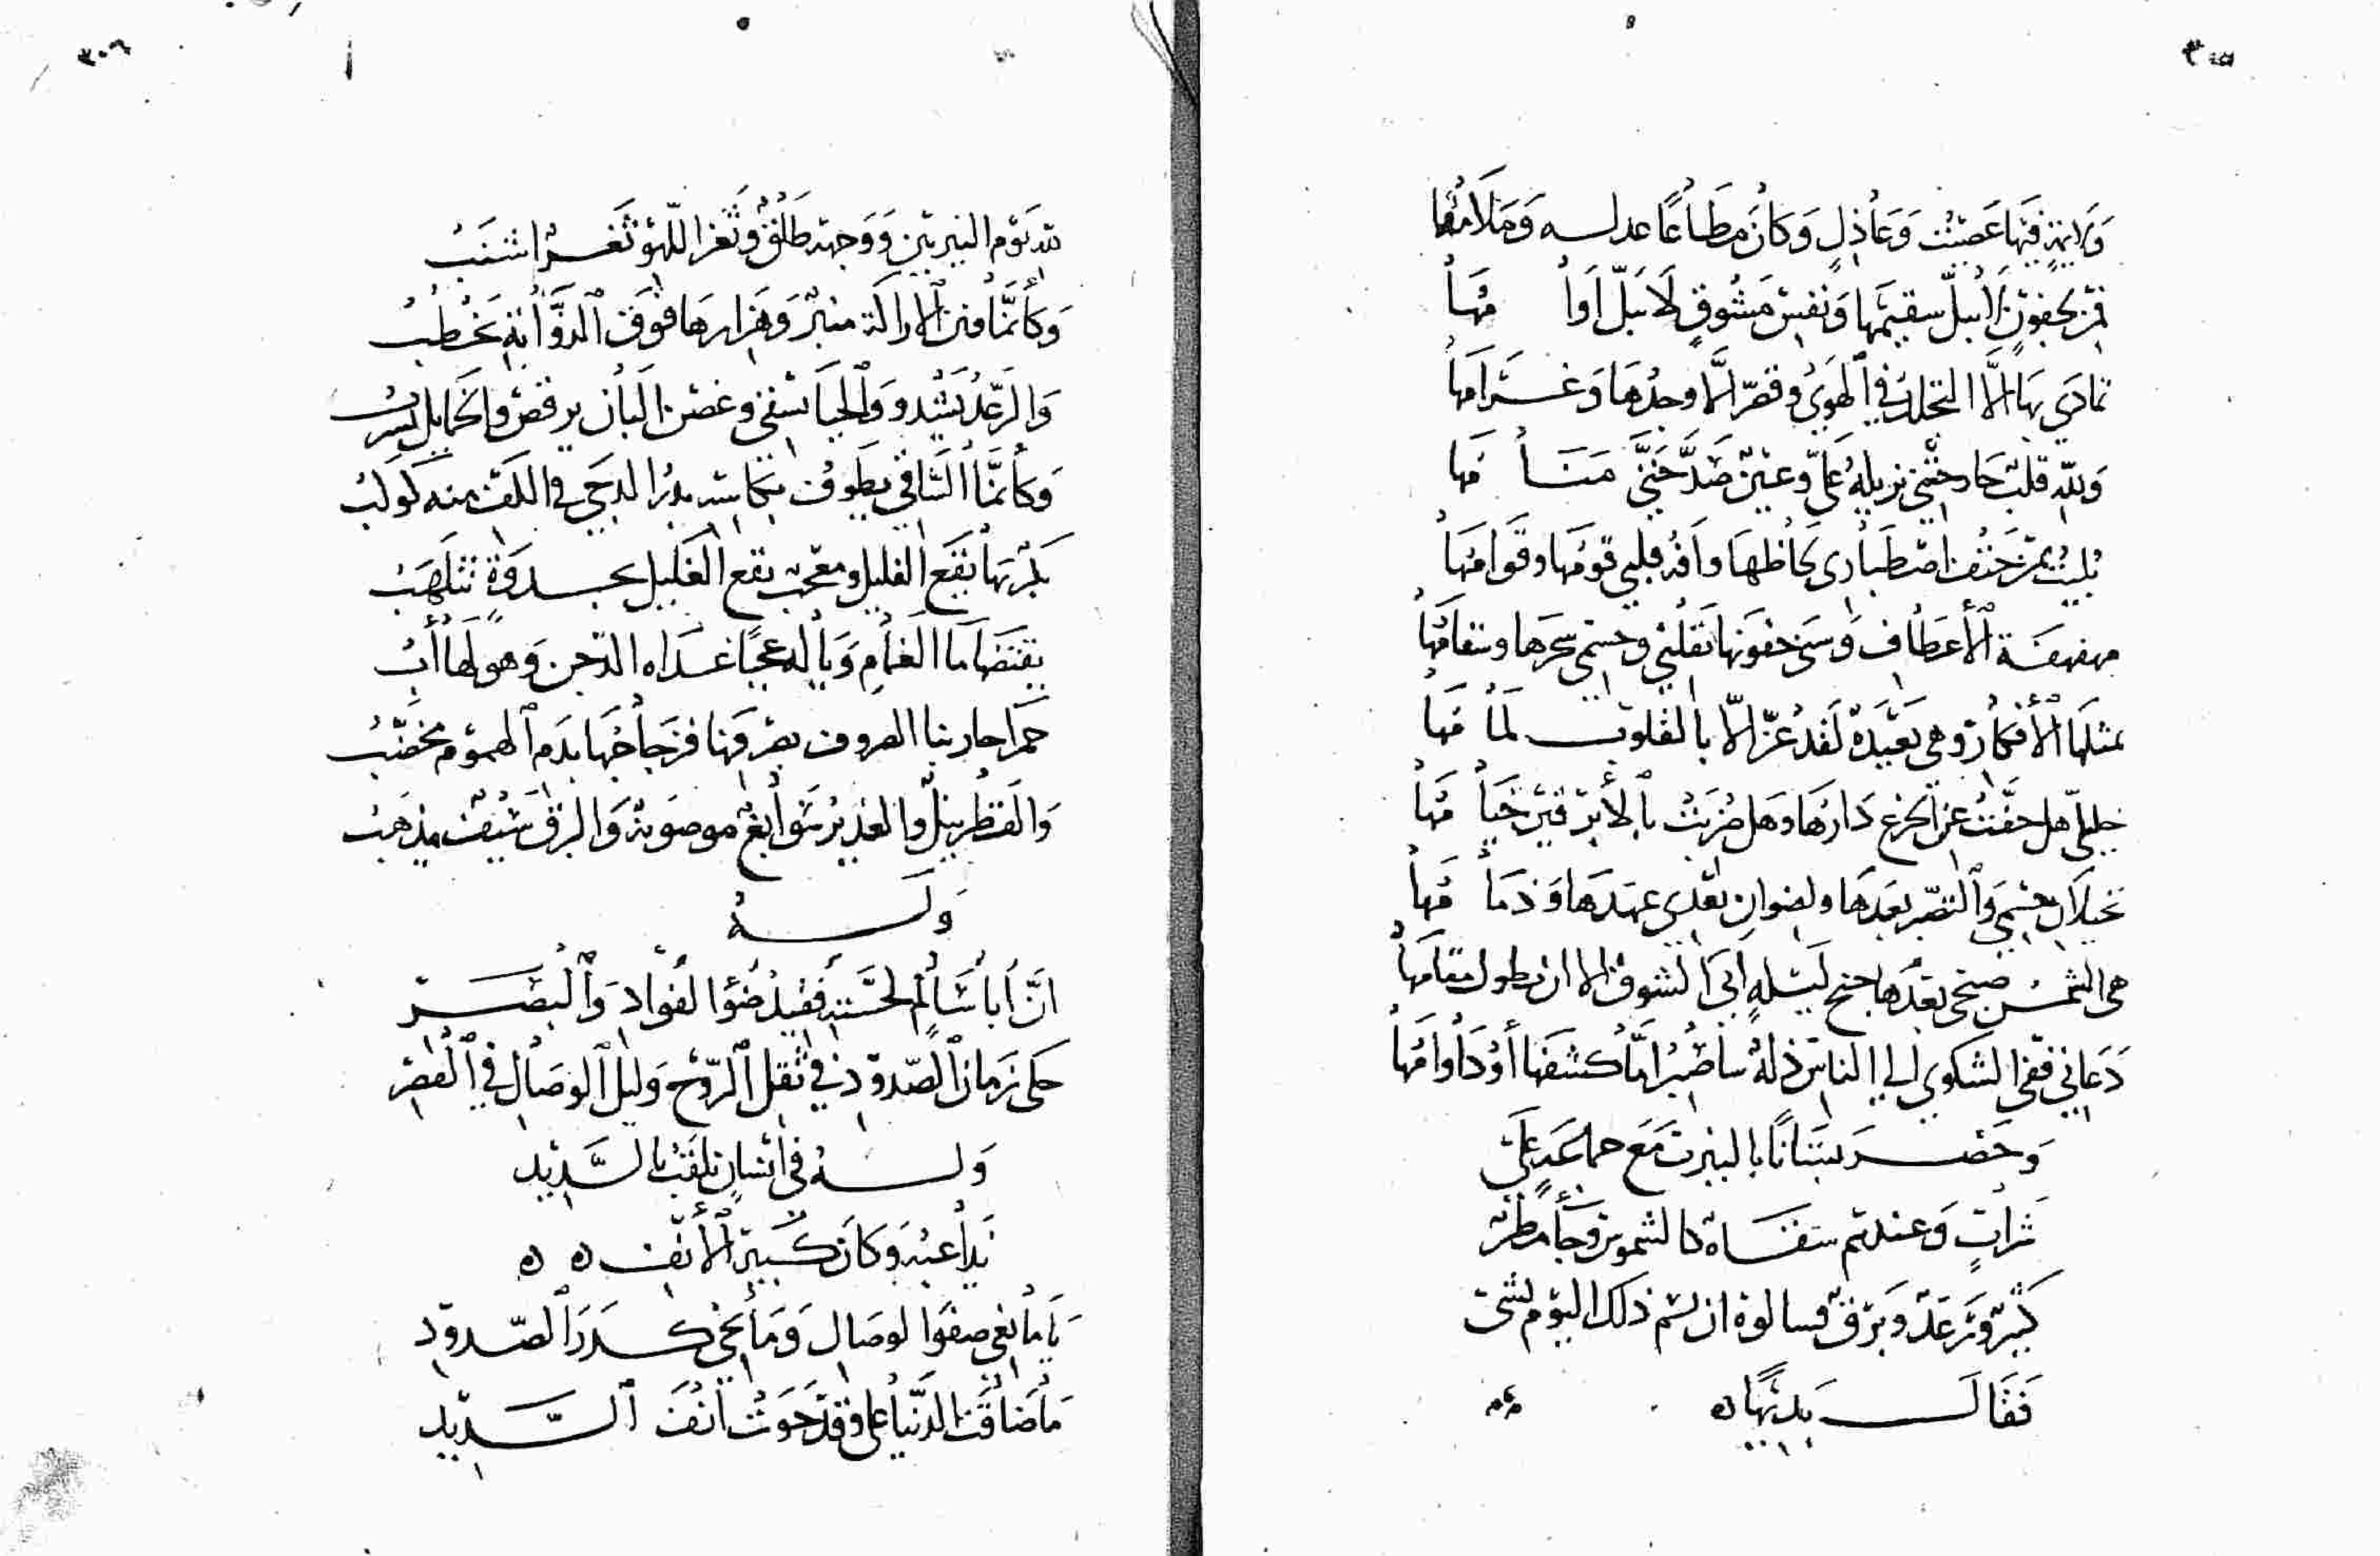 ٣٠٥
وَلائمةٍ فيهَا عَصَيْت وَعَاذلٍ وَكانَ مطَاعًا عدله وَمَلَامُهَا
فمن بجفونٍ لا يبلّ سقيمهَا وَنفس مَشُوقٍ لَا يَبلّ اوامُهَا
تمادي بهَا الّا التجلدُ في الهَوَي وقصّر الّا وجدُهَا وَغَرَامهَا
وَلله قلبٌ حَاد حتي نزيلهُ عليّ وعينٌ صَدَّ حَتيَّ مَنَامُهَا
بُليتُ بمَن حَتْف اصْطبَارِي لحَاظهَا وافة قلبي قومُهَا وقَوامُهَا
مهفهفَة الأعطَاف وَسنى جفونهَا تقلني وجسمي سحرهَا وسقامُهَا
تمثلهَا الأفكارُ وهي بَعيَدةٌ لقد عزّ الّا بالقلوب لمَامُهَا
خليليّ هل حفّت عن الجزع دَارهَا وهَل ضُربَتْ بالأبرقين خيَامُهَا
نحيلَانِ جسمي وَالتصبّر بعدهَا ولضوانِ بَعْدي عهدهَا وَذمَامُهَا
هي الشمسُ صبحي بَعْدهَا جنح ليْلةٍ ابىَ الشوق الا ان يطول مقامهَا
دَعَاني ففي الشكوي الي الناسِ ذلةٌ سأصْبُر امّا كشفهَا أوْ دَوامُهَا
وَحَضَر بُسْتانًا بالنيرب مَع جماعَةٍ عَلَى
شرابٍ وَعندهم سقَاة كالشموس وجَاء مطرٌ
كَثِيرٌ وَرَعْدٌ وبَرْقٌ فسالوه ان يسم ذلك اليوْم بشئ
فَقَالَ بَديهًا ه
٣٠٦
لله يَوْم النيربين وَوَجهه طَلْقٌ وَثغر اللّهو ثَغرٌ اشنبُ
وَكأنَّمَا فنن الاراكة منبرٌ وَهَزارهَا فوق الذؤابة يَخطبُ
وَالرّعْدُ يَشْدو وَالحيَا يسْقي وغصْن البَانِ يرقصُ والخمايل تشربُ
وَكأنَّمَا السَّاقي يطَوف بكَاسِه بدرُ الدجَي في الكفّ منه كوكبُ
بكرٌ بهَا نَقْعَ الغليل ومعجب نقع الغَليل بجذوةٍ تتلهَبُ
يفتضهَا مَاء الغَمامِ وَيا له عجبًا غداه الدّجن وَهو لها أبُ
حمرا حاربنا الصروف بصِرفهَا فزجَاجُهَا بدَم الهموْم مخضّبُ
وَالقطْر نبلٌ والغدير سَوابغٌ موضوَنةٌ وَالبرق سَيْفٌ مذهَبُ
وَلَهُ
انَّ أبَا شَامٍ لحسْنه فقيدُ ضوْء الفُؤادِ وَالبَصَرْ
حكى زَمانَ الصّدودِ في ثقل الرّوْحِ وَليلَ الوصَالِ في القِصَرْ
وَلَهُ في انسَانٍ يلقَبُ بالسَّديد
يَلاعبُه وَكانَ كَبيَر الأنْف ه ه
يَا مَانعي صفوَ الوصَالِ وَمَانحي كدرَ الصّدودِ
مَا ضَاقَت الدّنيَا عليّ وقدْ حَوَتْ انْفَ السَّديدِ